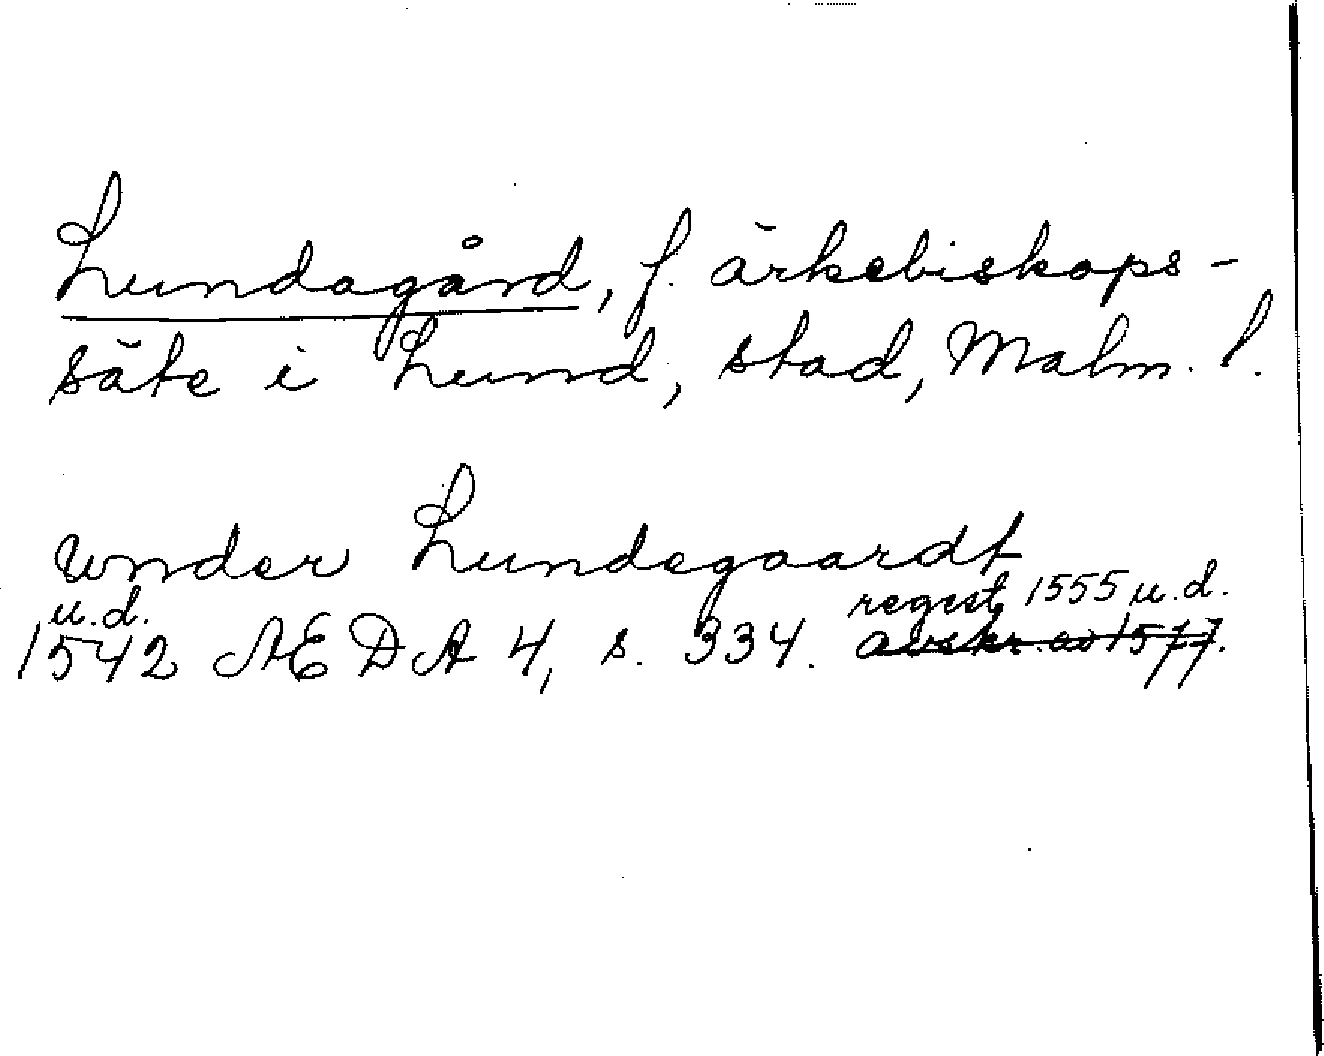 Lundagård, f. ärkebiskops-
säte i Lund, stad, Malm. l.
wnder Lundegaardt
u.d.
regest 1555 u.d.
1542 ÆDA 4, s. 334. avskr. av 1577.